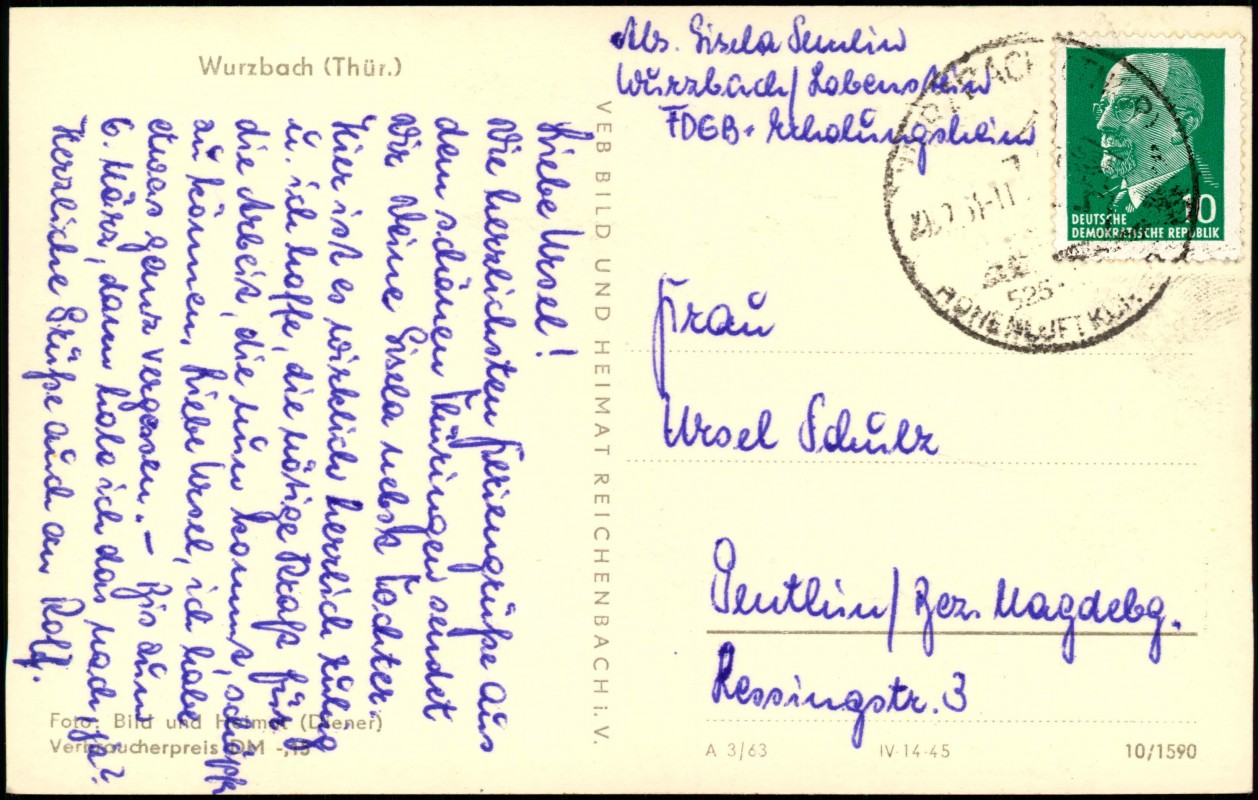 Wurzbach (Thür.)
Abs. Gisela
Wurzbach/Lobenstein
FDGB-Erholungsheim
DEUTSCHE
DEMOKRATISCHE REPUBLIK
10
525
HÖHENLUFTKUR
Liebe Ursel!
Die herzlichsten Feriengrüße aus
dem schönen Thüringen sendet
Dir Deine Gisela nebst Tochter.
Hier ist es wirklich herrlich ruhig
u. ich hoffe, die nötige Kraft für
die Arbeit, die nun kommt, schöpfen
zu können. Liebe Ursel, ich habe
etwas ganz vergessen. – Bis zum
6. März, dann hole ich das nach, ja?
Herzliche Grüße auch an Rolf.
VEB BILD UND HEIMAT REICHENBACH i. V.
Frau
Ursel Schulz
Genthin/Bez. Magdebg.
Lessingstr. 3
Foto: Bild und Heimat (Diener)
Verbraucherpreis DM -,15
A 3/63
IV-14-45
10/1590